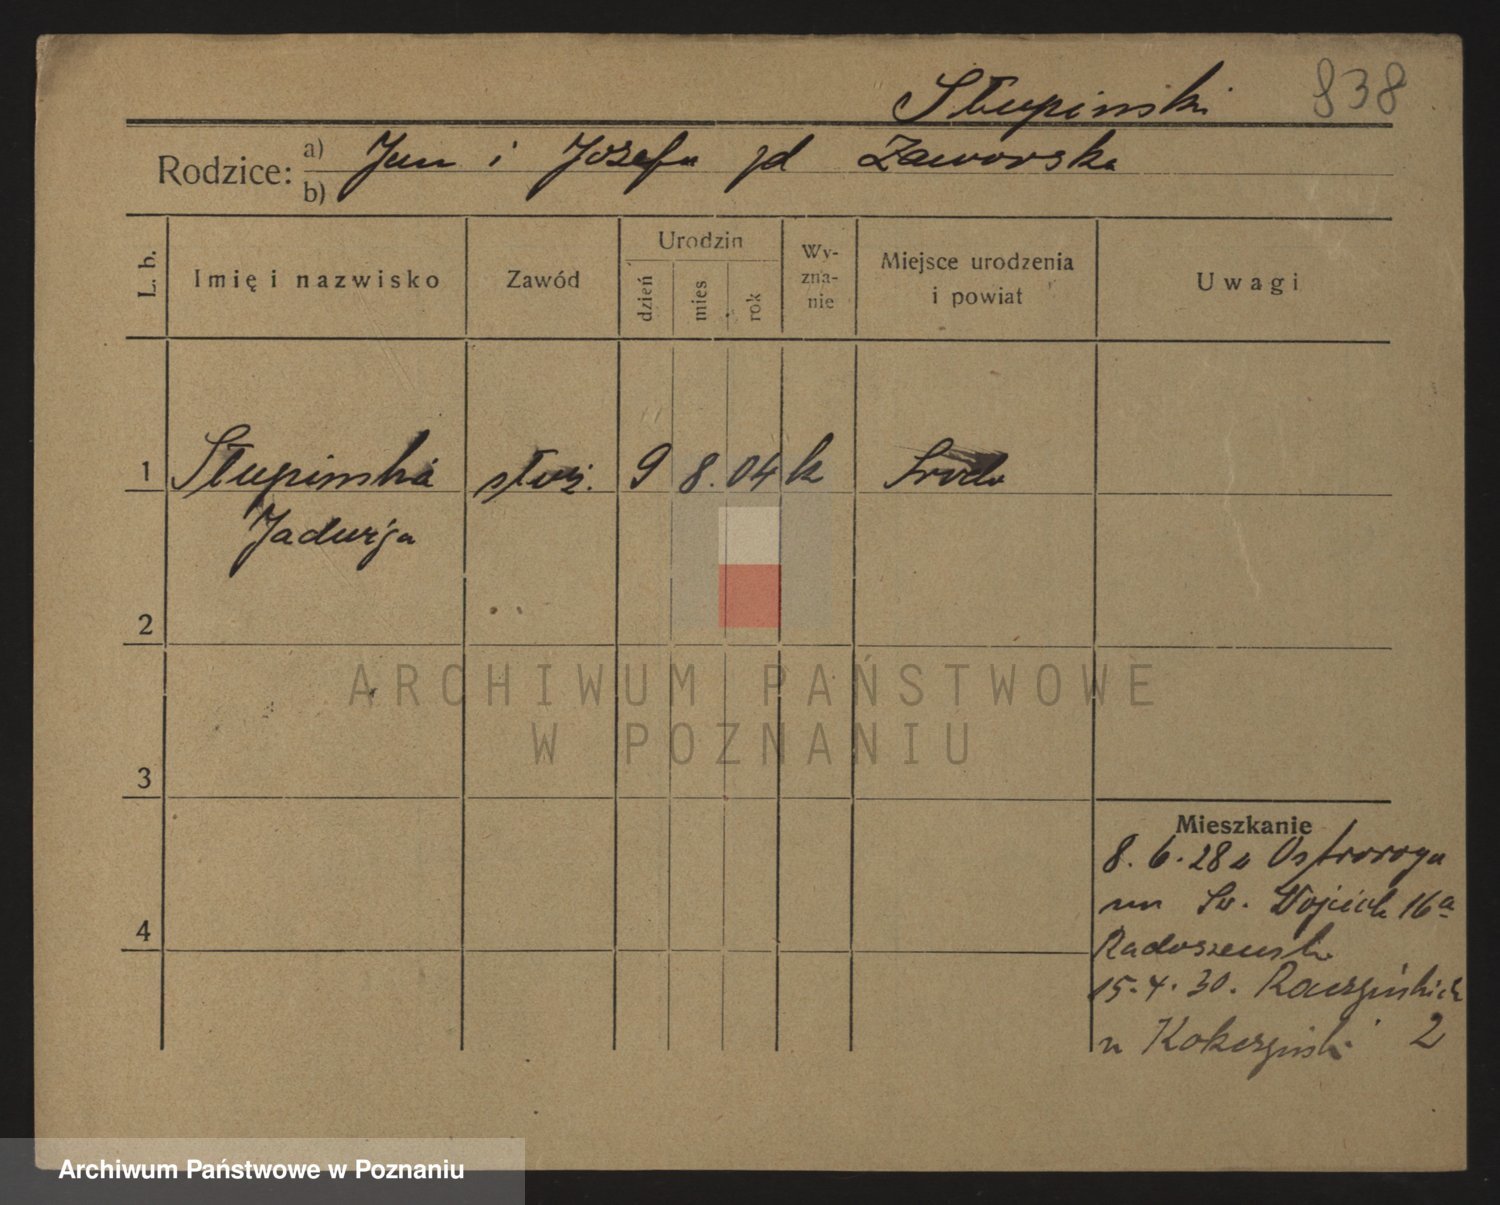 Słupinski 838
Rodzice: a) Jan i Józefa zd Zaworska
b)
L. b.
Imię i nazwisko
Zawód
Urodzin
dzień
mies
rok
Wy-
zna-
nie
Miejsce urodzenia
i powiat
Uwagi
1 Słupinska służ. 9 8. 04 k Sroda
Jadwiga
2
3
4
ARCHIWUM PAŃSTWOWE
W POZNANIU
Mieszkanie
8. 6. 28 z Ostroroga
na Sw. Wojciech 16a
Radoszewska
15. 4. 30. Raczyńskich
u Kokczynski 2
Archiwum Państwowe w Poznaniu